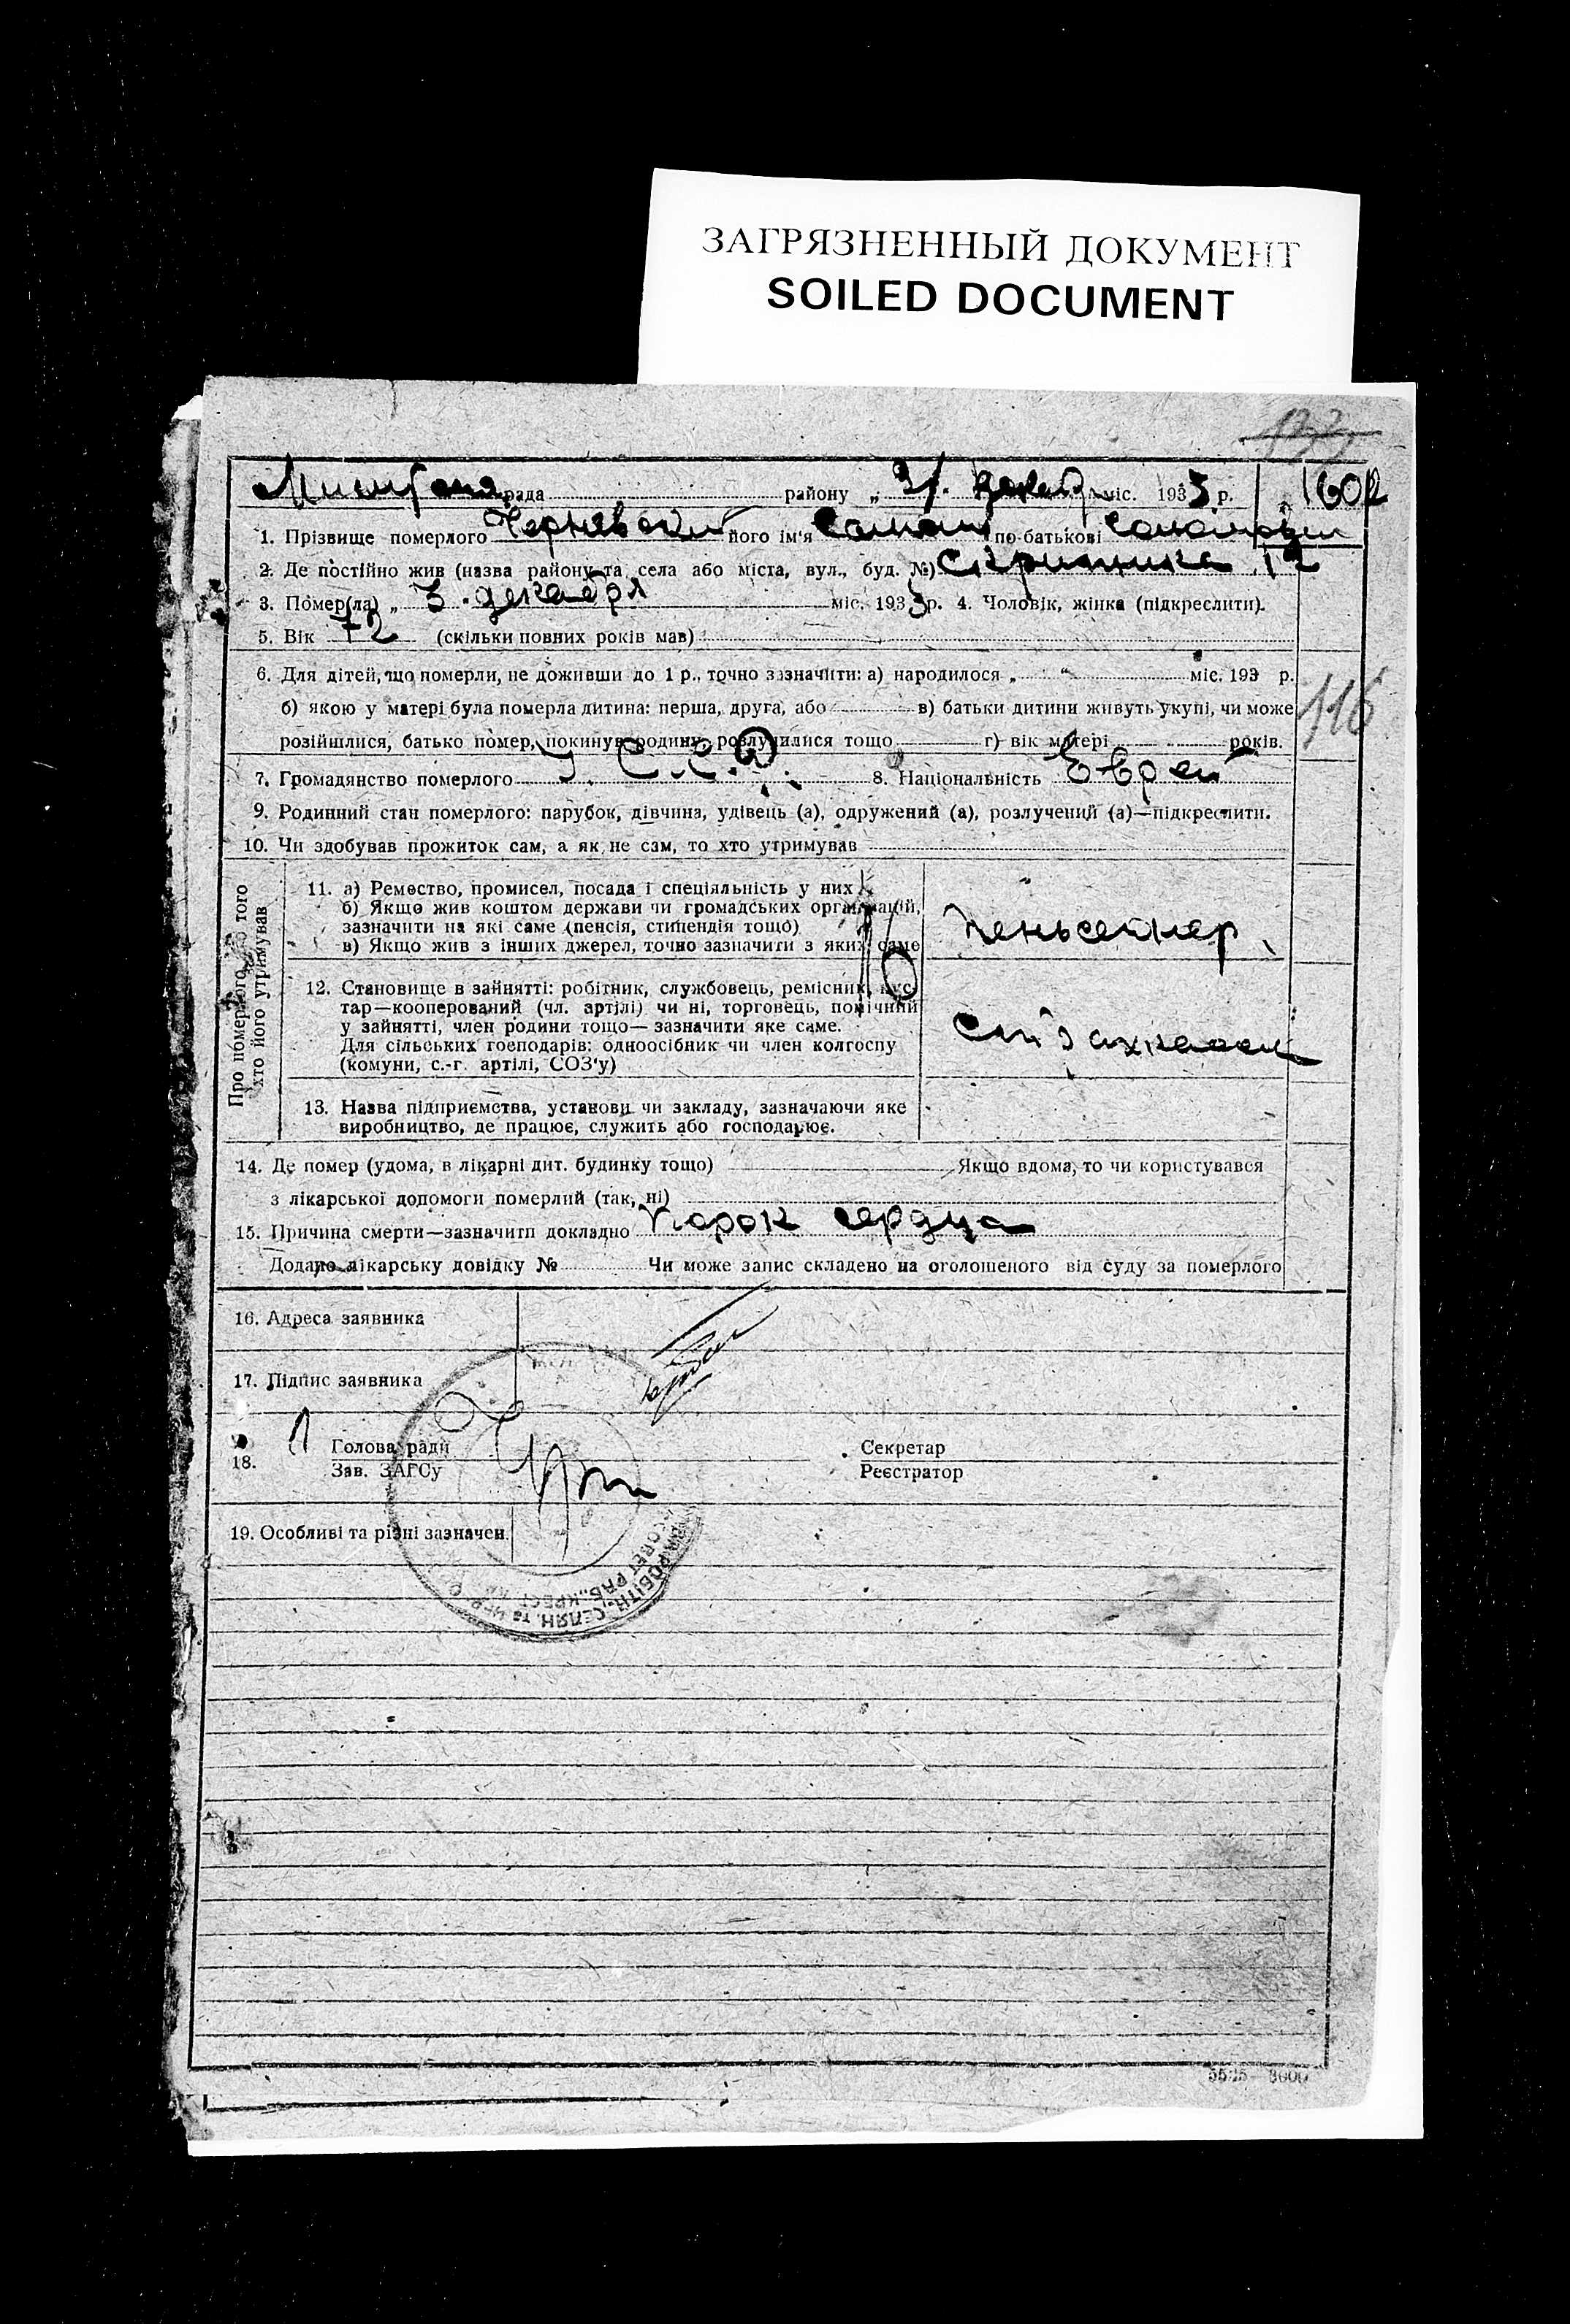 ЗАГРЯЗНЕННЫЙ ДОКУМЕНТ
SOILED DOCUMENT
рада району „ 193 р. 160
1. Прізвище померлого Чернявский його ім'я по батькові
2. Де постійно жив (назва району та села або міста, вул., буд. №) Скрипника 12
3. Помер(ла) „ 3. декабря міс. 1933 р. 4. Чоловік, жінка (підкреслити).
5. Вік 72 (скільки повних років мав)
6. Для дітей, що померли, не доживши до 1 р., точно зазначити: а) народилося „ “ міс. 193 р.
б) якою у матері була померла дитина: перша, друга, або в) батьки дитини живуть укупі, чи може
116
розійшлися, батько помер, покинув родину, розлучилися тощо г) вік матері років.
7. Громадянство померлого 8. Національність Еврей
9. Родинний стан померлого: парубок, дівчина, удівець (а), одружений (а), розлучений (а)—підкреслити.
10. Чи здобував прожиток сам, а як не сам, то хто утримував
Про померлого або того
хто його утримував
11. а) Ремество, промисел, посада і спеціяльність у них
б) Якщо жив коштом держави чи громадських організацій,
зазначити на які саме (пенсія, стипендія тощо)
в) Якщо жив з інших джерел, точно зазначити з яких саме
12. Становище в зайнятті: робітник, службовець, ремісник, кус-
тар—кооперований (чл. артілі) чи ні, торговець, помічний
у зайнятті, член родини тощо— зазначити яке саме.
Для сільських господарів: одноосібник чи член колгоспу
(комуни, с.-г. артілі, СОЗ'у)
13. Назва підприємства, установи чи закладу, зазначаючи яке
виробництво, де працює, служить або господарює.
14. Де помер (удома, в лікарні дит. будинку тощо) Якщо вдома, то чи користувався
з лікарської допомоги померлий (так, ні)
15. Причина смерти—зазначити докладно Порок сердца
Додано лікарську довідку № Чи може запис складено на оголошеного від суду за померлого
16. Адреса заявника
17. Підпис заявника
18. Голова ради Секретар
Зав. ЗАГСу Реєстратор
19. Особливі та різні зазначен.
РОБІТН. СЕЛЯН. та